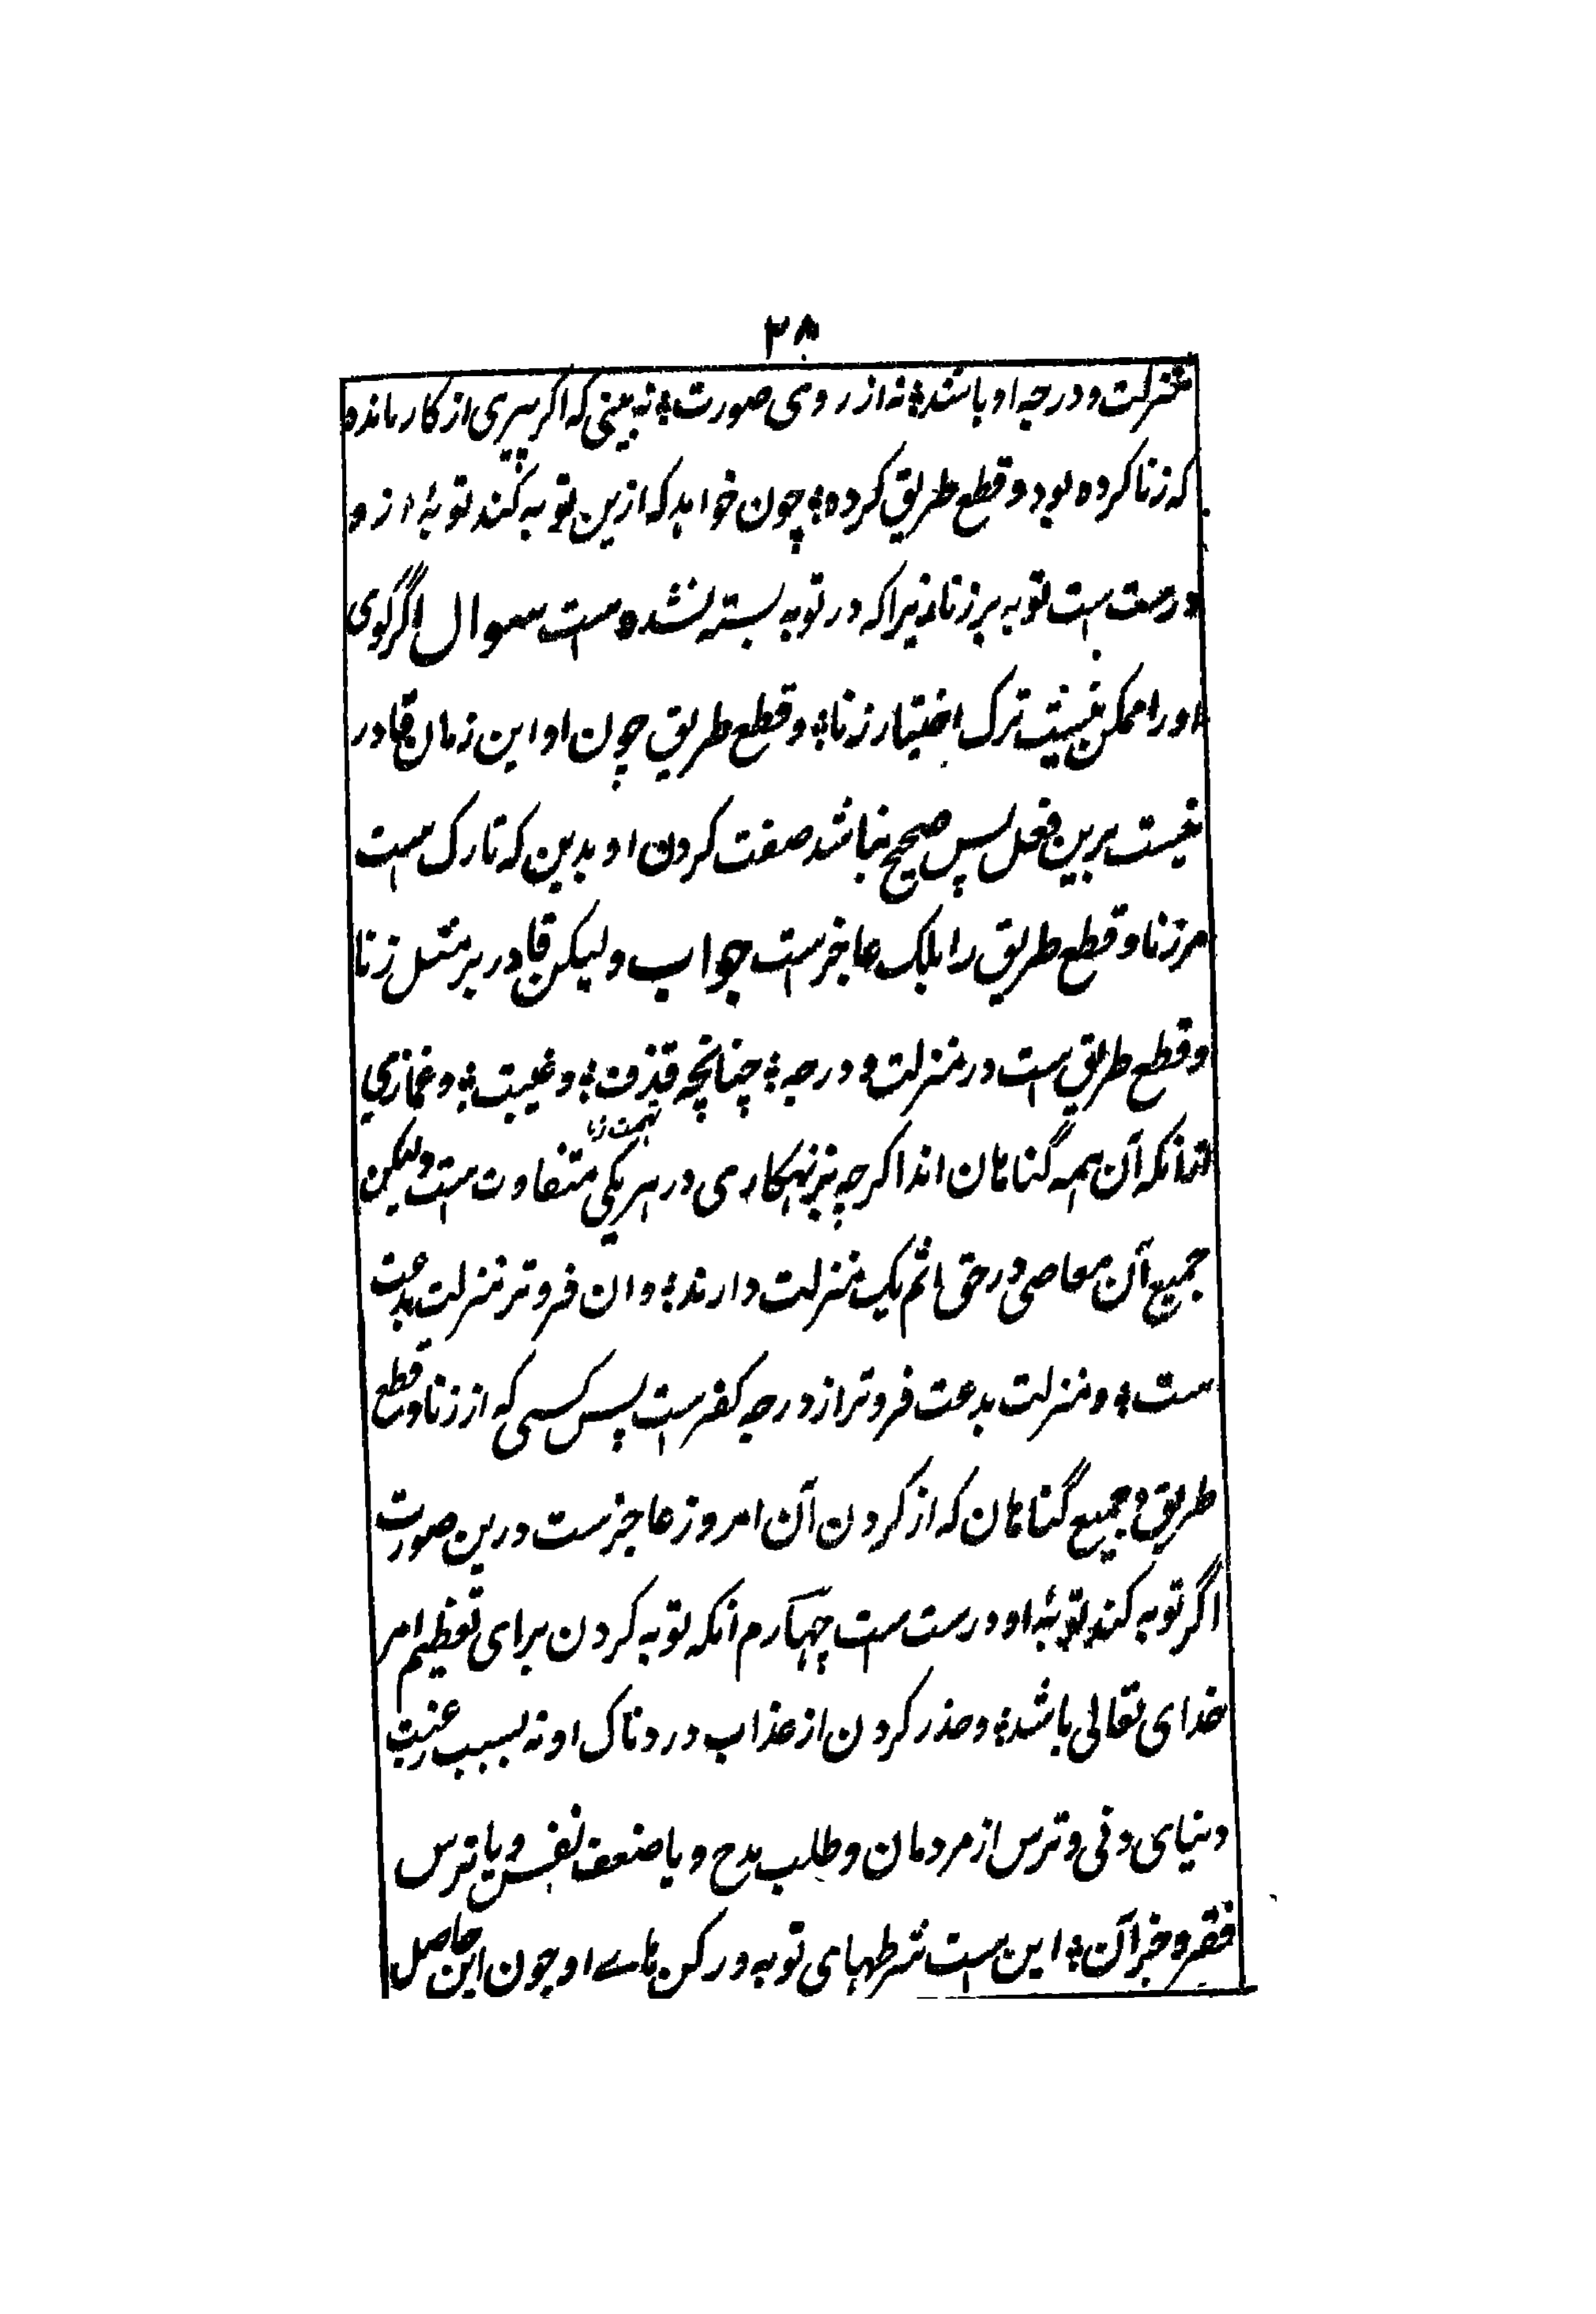 ۲۸
منزلت و درجه او باشد؛ نه از روی صورت؛ نه بینی که اگر پیری از کار مانده
که زنا کرده بود و قطع طریق کرده؛ چون خواهد که ازین توبه کند توبۀ از و
درست ست توبه بر زنا؛ زیرا که در توبه بسته نشده است سوال اگر گوی
او را ممکن نیست ترک اختیار زنا؛ و قطع طریق چون او این زمان قادر
نیست برین فعل پس صحیح نباشد صفت کردن او بدین که تارک است
مر زنا و قطع طریق را بلک عاجز ست جواب ولیکن قادر بر مثل زنا
و قطع طریق ست در منزلت و درجه؛ چنانچه قذف؛ و غیبت؛ و غمازی
تهمت
آن همه گناهان اند اگرچه بزهکاری در هر یکی متفاوت ست ولیکن
جمیع آن معاصی در حق اثم یک منزلت دارند؛ و ان فروتر منزلت بدعت
ست؛ و منزلت بدعت فروتر از درجه کفر ست پس کسی که از زنا و قطع
طریق و جمیع گناهان که از کردن آن امروز عاجز ست درین صورت
اگر توبه کند توبۀ او درست ست چهارم انکه توبه کردن برای تعظیم امر
خدای تعالی باشد؛ و حذر کردن از عذاب دردناک او نه بسبب رغبت
دنیای دنی و ترس از مردمان و طلب مدح و یا ضعف نفس و یا ترس
فقر و جز آن؛ این ست شرطهای توبه و رکن هاے او چون این حاصل